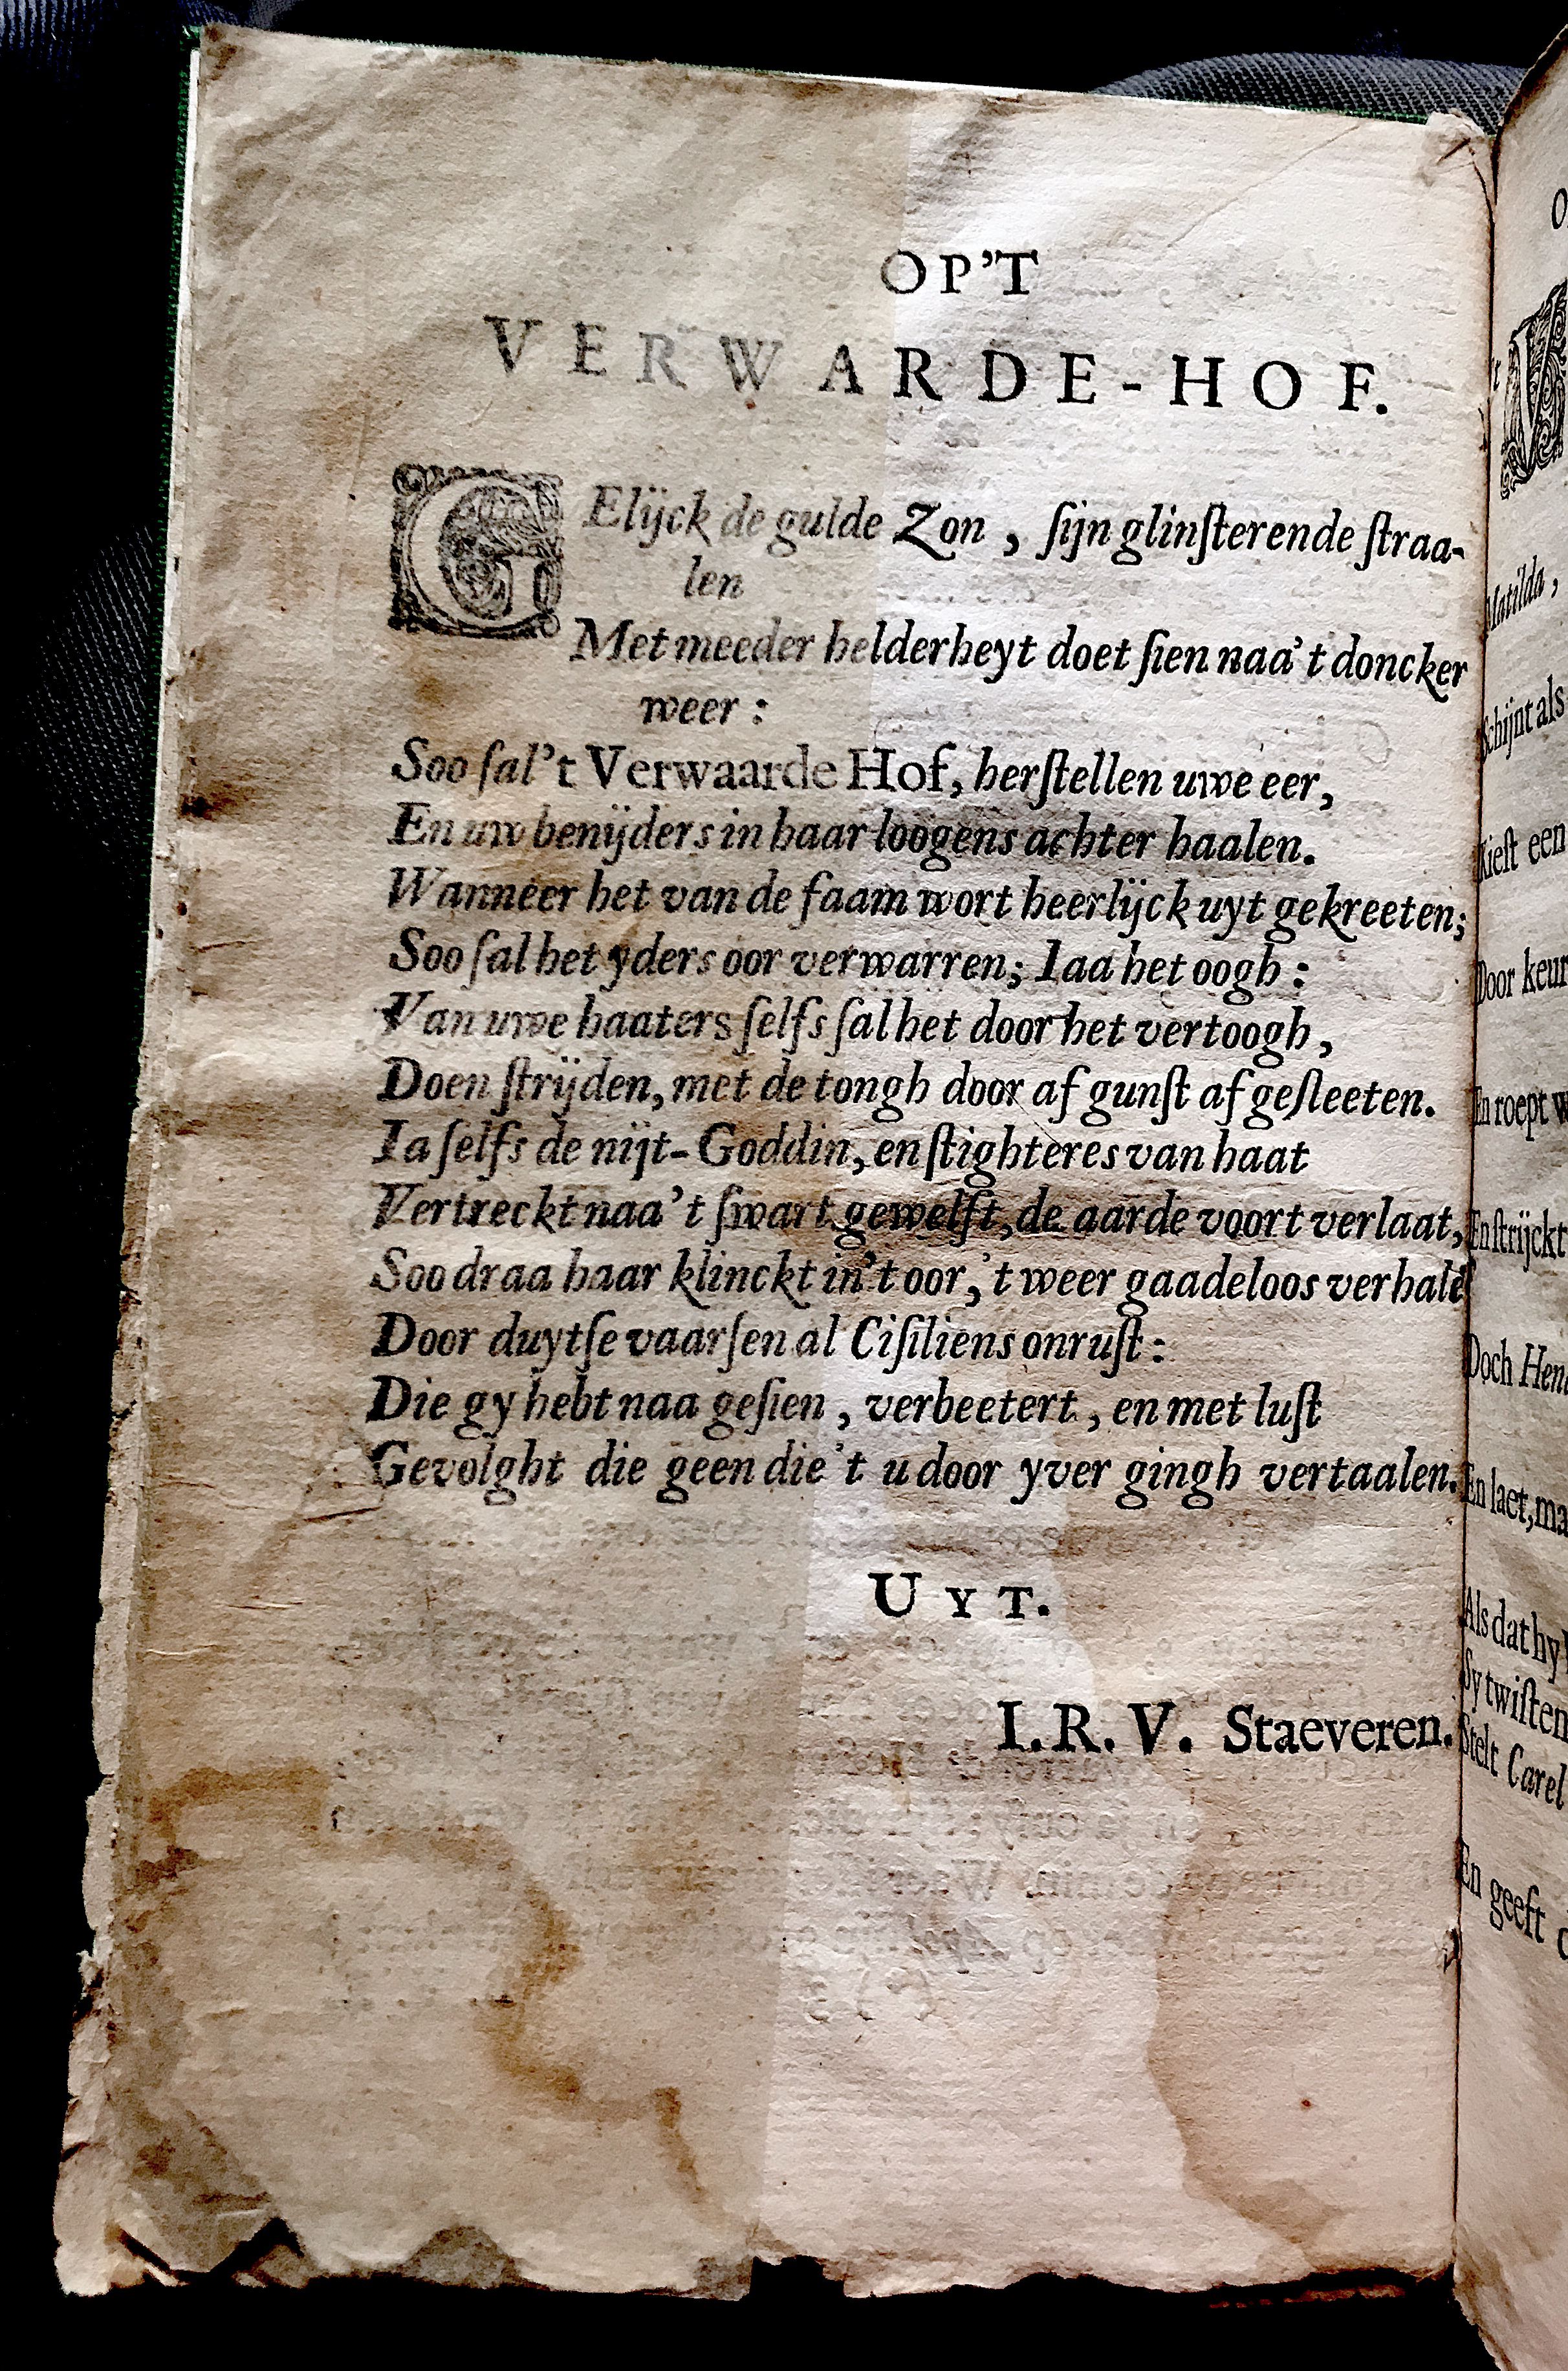 OP'T
VERWARDE-HOF.
GElijck de gulde Zon, ſijn glinſterende ſtraa-
len
Met meeder helderheyt doet ſien naa't doncker
weer:
Soo ſal't Verwaarde Hof, herſtellen uwe eer,
En uw benijders in haar loogens achter haalen.
Wanneer het van de faam wort heerlijck uyt gekreeten;
Soo ſal het yders oor verwarren; Iaa het oogh:
Van uwe haaters ſelfs ſal het door het vertoogh,
Doen ſtrijden, met de tongh door af gunſt af geſleeten.
Ia ſelfs de nijt-Goddin, en ſtighteres van haat
Vertreckt naa't ſwart gewelft, de aarde voort verlaat,
Soo draa haar klinckt in't oor, 't weer gaadeloos verhalē
Door duytſe vaarſen al Ciſiliens onruſt:
Die gy hebt naa geſien, verbeetert, en met luſt
Gevolght die geen die't u door yver gingh vertaalen.
UYT.
I.R.V. Staeveren.
Matilda,
Schijnt als
Kieſt een
Door keur
En roept
En ſtrijckt
Doch
En laet,
Als dat hy
Sy twiſten
Stelt Carel
En geeft